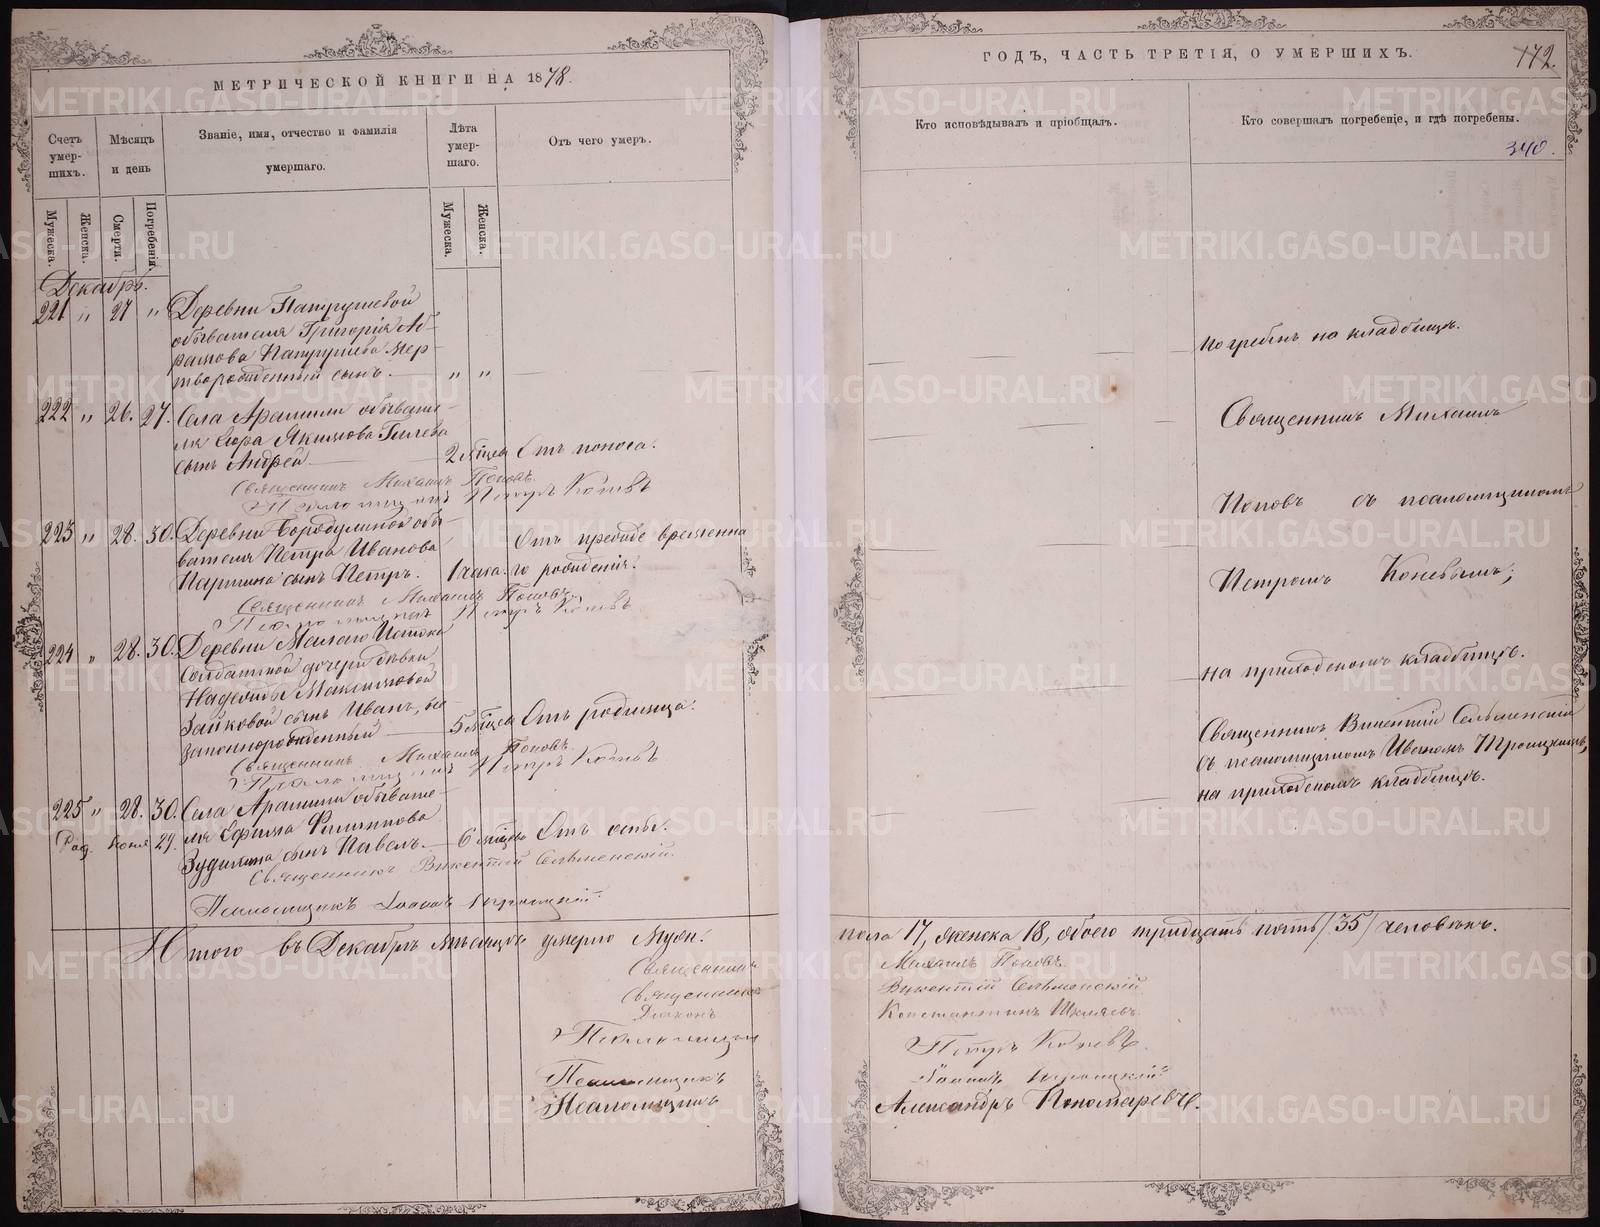 МЕТРИЧЕСКОЙ КНИГИ НА 1878.
Счетъ умер-шихъ.
Мѣсяцъ и день
Званіе, имя, отчество и фамилія умершаго.
Лѣта умер-шаго.
Отъ чего умеръ.
Мужеска.
Женска.
Смерти.
Погребенія.
Мужеска.
Женска.
Декабрь.
221 " 27 " Деревни Патрушевой
обывателя Григорія Аб-
рамова Патрушева мер-
творожденный сынъ. " "
222 " 26. 27. Села Арамили обывате-
ля Якимова
сынъ Андрей 2 мѣсяца Отъ поноса.
Священникъ Михаилъ Поповъ.
Псаломщикъ Петръ Коневъ
223 " 28. 30. Деревни Бородулиной обы-
вателя Петра Иванова
Паршина сынъ Петръ. 1 часа. Отъ прежде временна
го рожденія.
Священникъ Михаилъ Поповъ.
Псаломщикъ Петръ Коневъ
224 " 28. 30. Деревни Малаго Истока
солдатской дочери дѣвки
Надежды Максимовой
Зайковой сынъ Иванъ, не-
законнорожденный 5 мѣсяца Отъ родимца.
Священникъ Михаилъ Поповъ.
Псаломщикъ Петръ Коневъ
225 " 28. 30. Села Арамили обывате-
Род. Іюня 29. ля Ефима Филиппова
сынъ Павелъ. 6 мѣсяцевъ Отъ оспы.
Священникъ Викентій Сельменскій.
Псаломщикъ Іоаннъ Троицкій.
Итого въ Декабрѣ мѣсяцѣ умерло Муж.
Священникъ
Священникъ
Діаконъ
Псаломщикъ
Псаломщикъ
Псаломщикъ
ГОДЪ, ЧАСТЬ ТРЕТІЯ, О УМЕРШИХЪ.
172.
Кто исповѣдывалъ и пріобщалъ.
Кто совершалъ погребеніе, и гдѣ погребены.
340.
Погребенъ на кладбищѣ.
Священникъ Михаилъ
Поповъ съ псаломщикомъ
Петромъ Коневымъ;
на приходскомъ кладбищѣ.
Священникъ Викентій Сельменскій
съ псаломщикомъ Иваномъ Троицкимъ,
на приходскомъ кладбищѣ.
пола 17, женска 18, обоего тридцать пять /35/ человѣкъ.
Михаилъ Поповъ.
Викентій Сельменскій
Константинъ
Петръ Коневъ.
Іоаннъ Троицкій
Александръ Пономаревъ.
METRIKI.GASO-URAL.RU